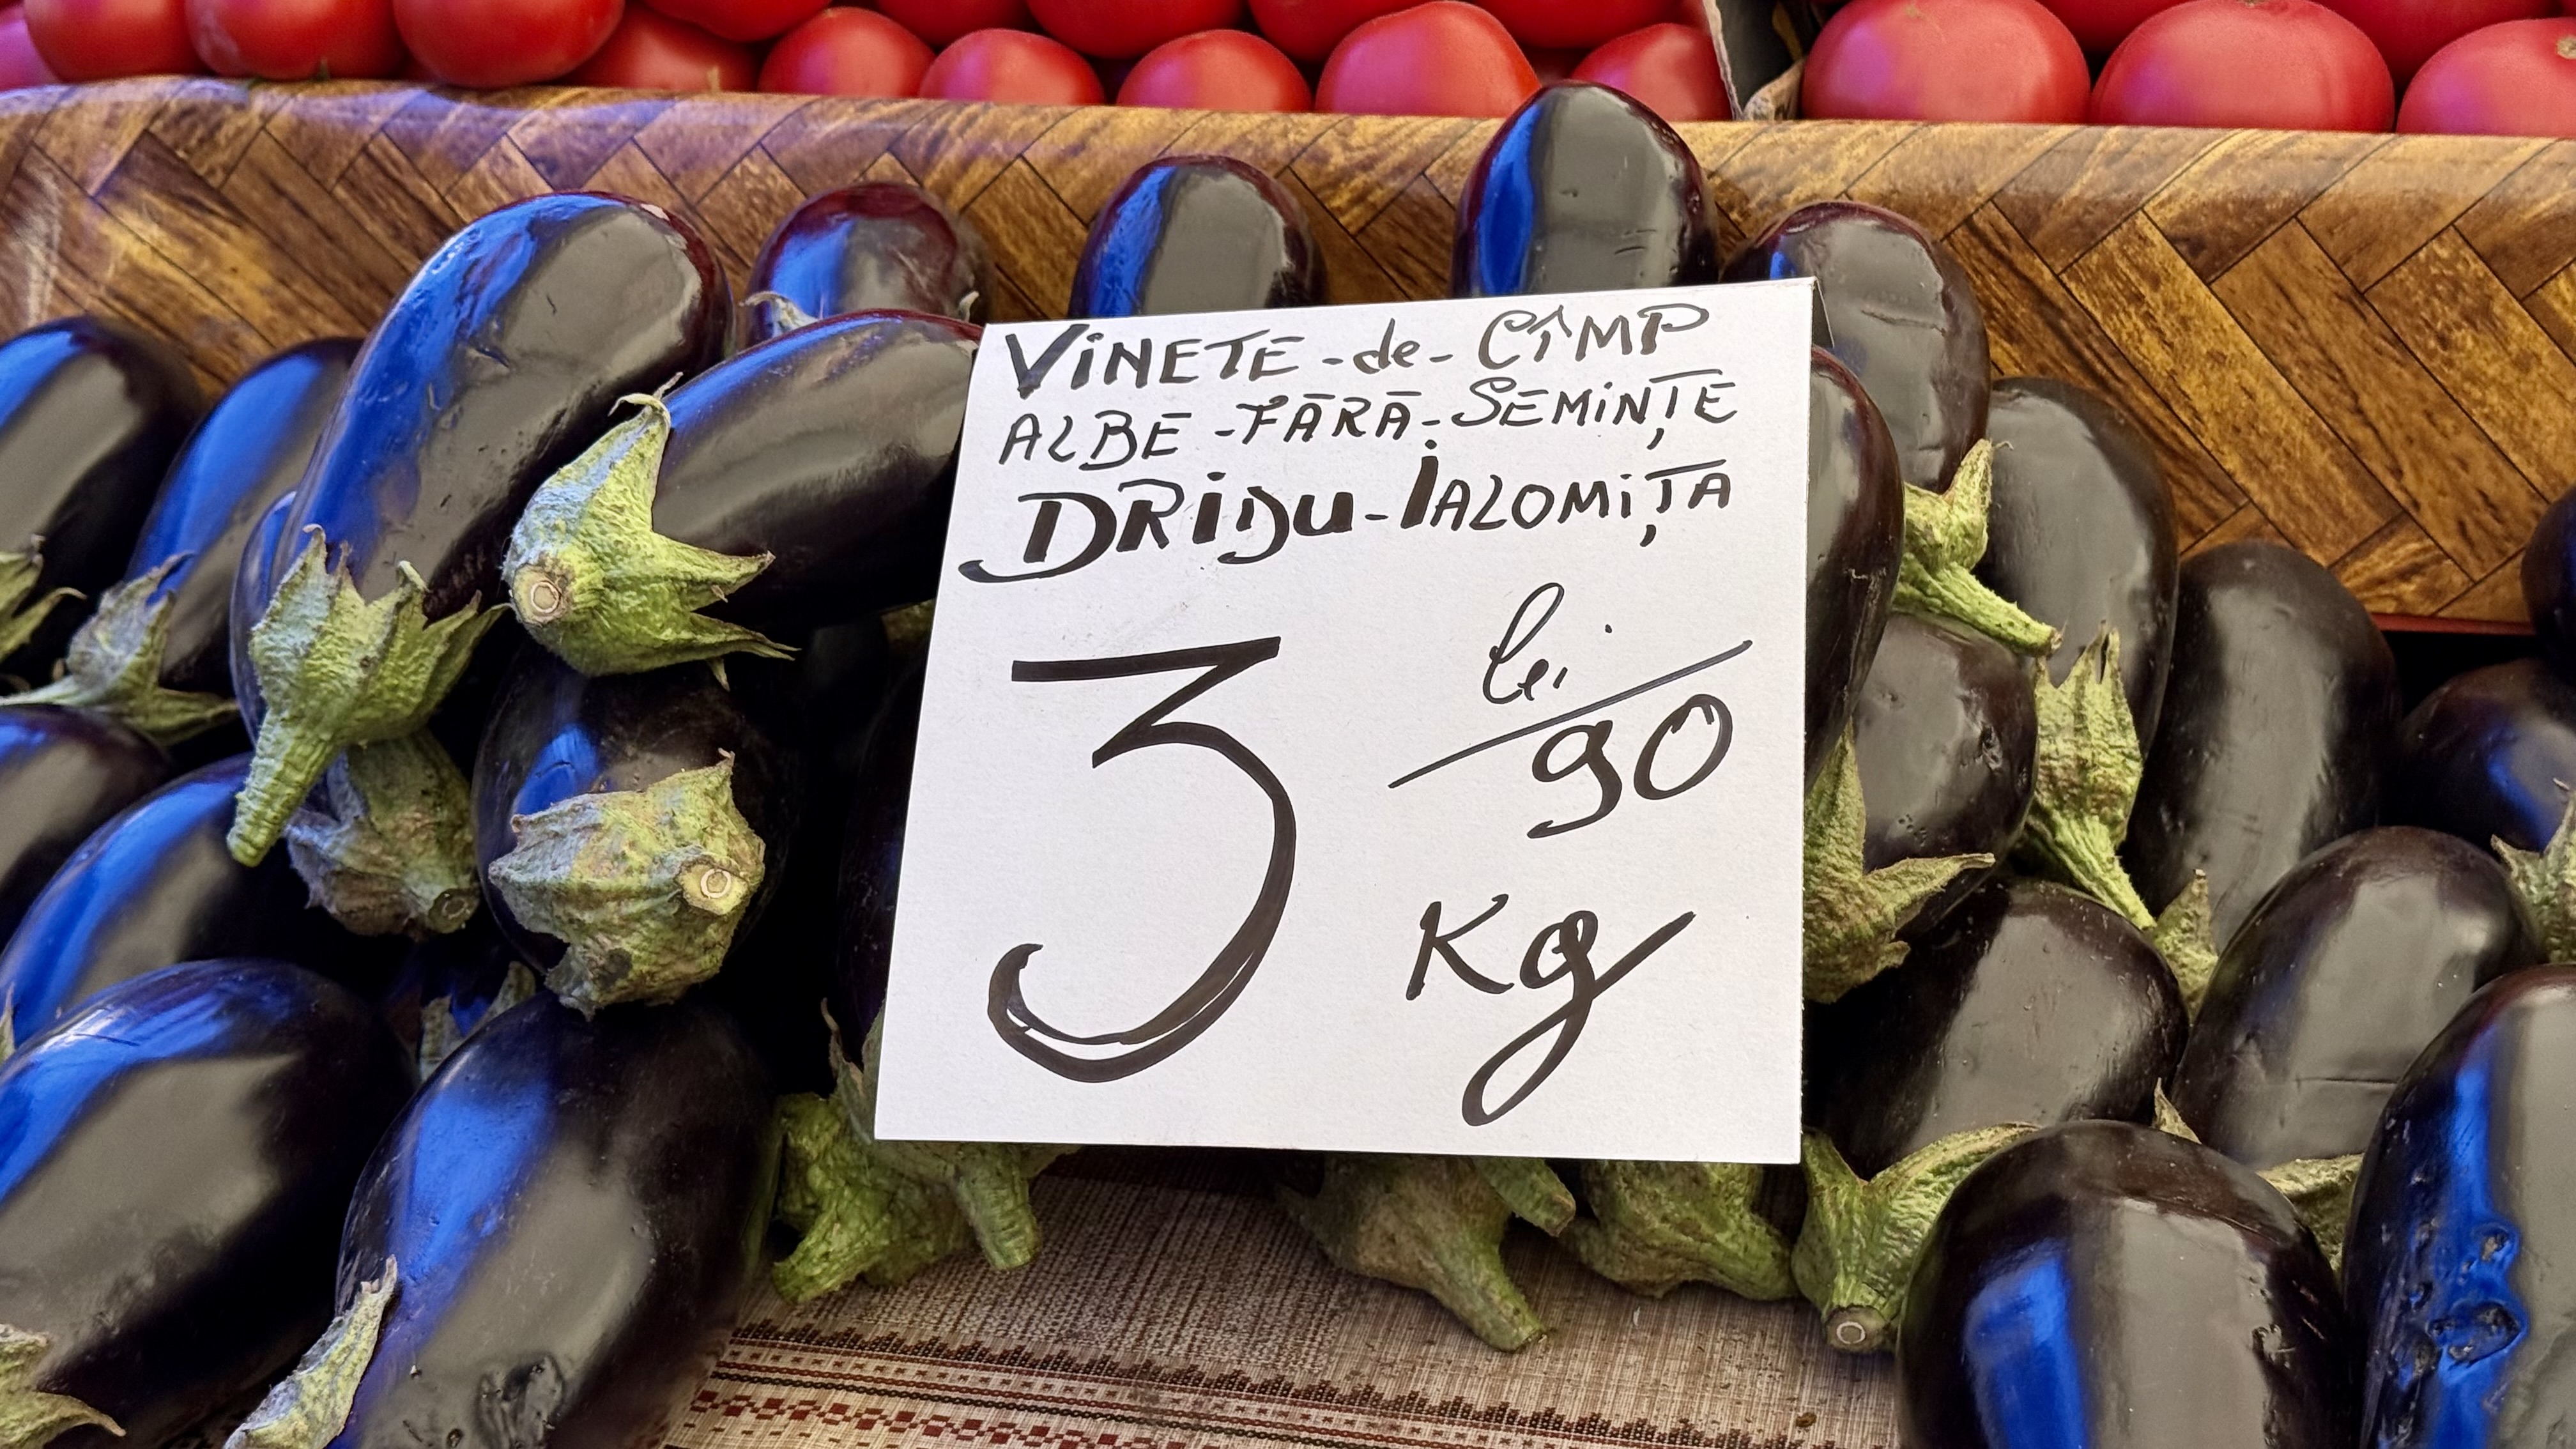 VINETE-de-CÎMP
ALBE-FĂRĂ-SEMINȚE
DRIDU-IALOMIȚA
3 lei/90
Kg